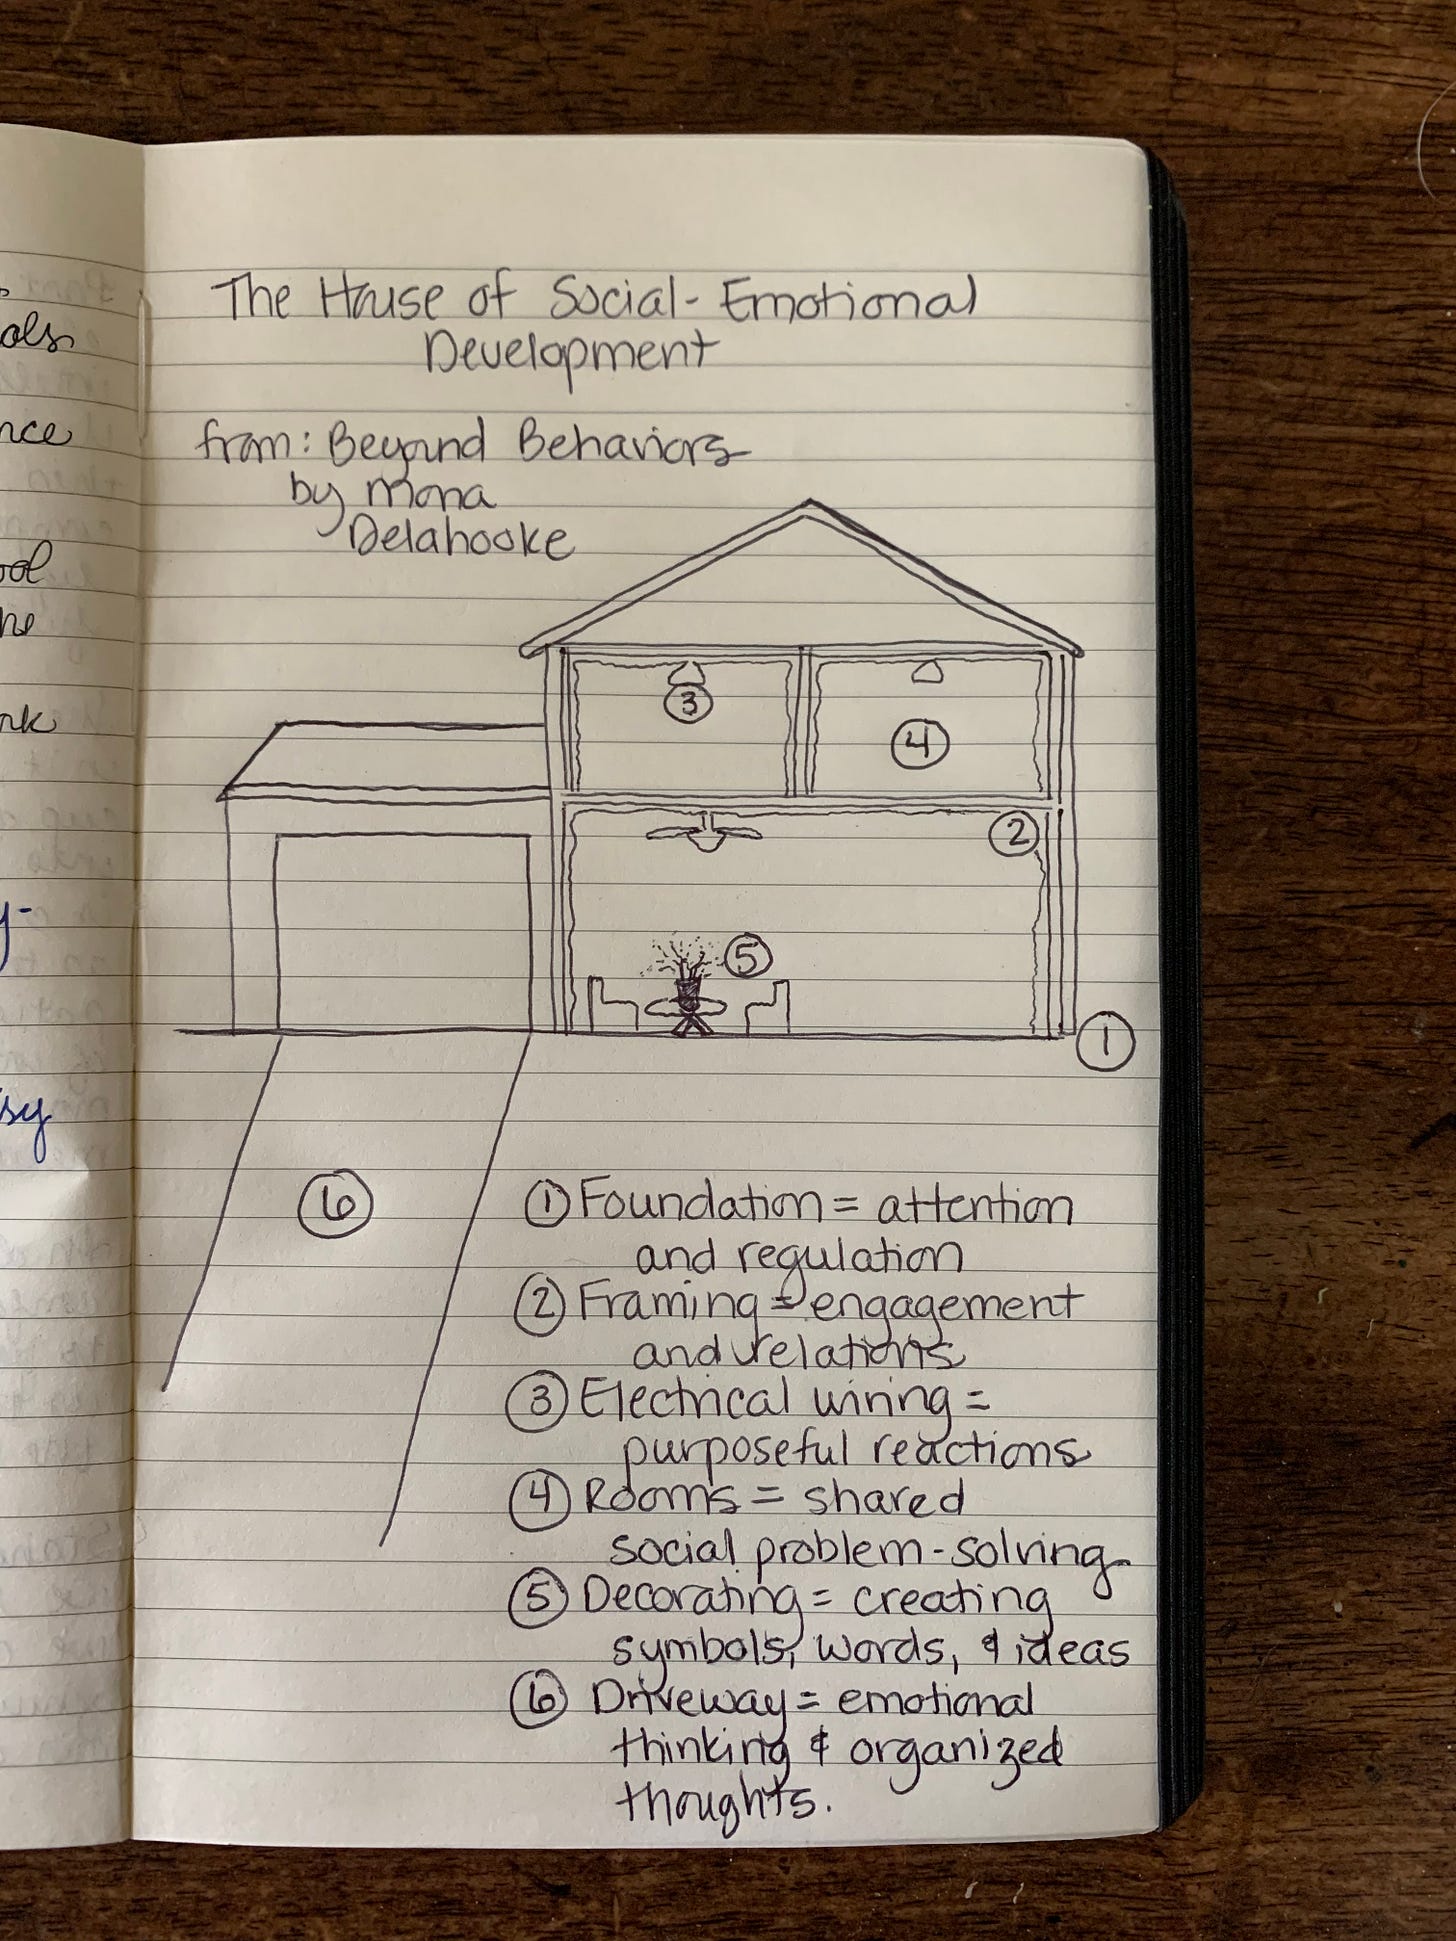 ols
nce
ool
he
ork
y-
sy
The House of Social-Emotional
Development
from: Beyond Behaviors
by Mona
Delahooke
3
4
2
5
1
6
① Foundation = attention
and regulation
② Framing = engagement
and relations
③ Electrical wiring =
purposeful reactions
④ Rooms = shared
social problem-solving
⑤ Decorating = creating
symbols, words, & ideas
⑥ Driveway = emotional
thinking & organized
thoughts.